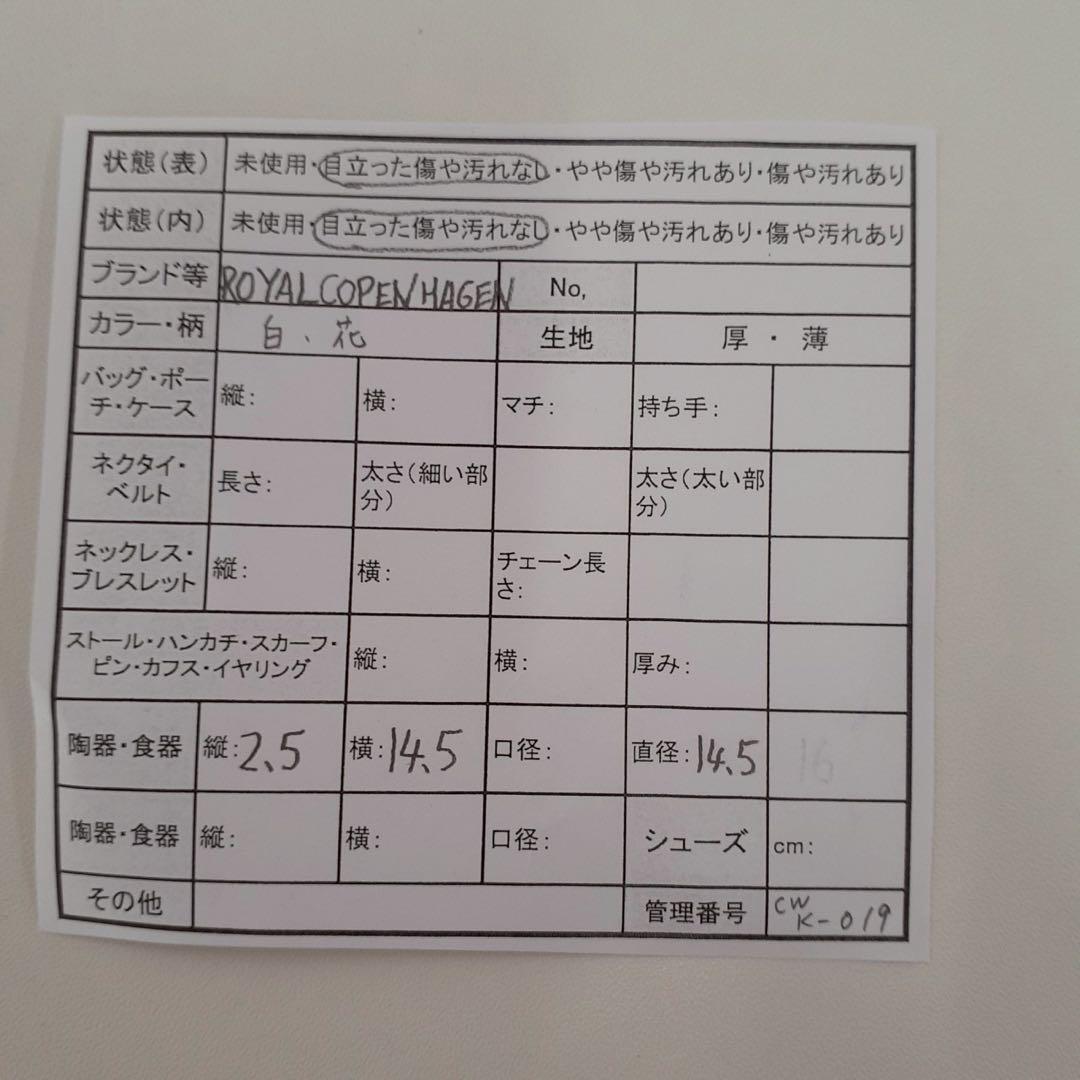 状態（表） 未使用・目立った傷や汚れなし・やや傷や汚れあり・傷や汚れあり
状態（内） 未使用・目立った傷や汚れなし・やや傷や汚れあり・傷や汚れあり
ブランド等 ROYALCOPENHAGEN No,
カラー・柄 白、花 生地 厚・薄
バッグ・ポー
チ・ケース 縦： 横： マチ： 持ち手：
ネクタイ・
ベルト 長さ： 太さ（細い部
分） 太さ（太い部
分）
ネックレス・
ブレスレット 縦： 横： チェーン長
さ：
ストール・ハンカチ・スカーフ・
ピン・カフス・イヤリング 縦： 横： 厚み：
陶器・食器 縦：2.5 横：14.5 口径： 直径：14.5 16
陶器・食器 縦： 横： 口径： シューズ cm：
その他 管理番号 CW
K-019